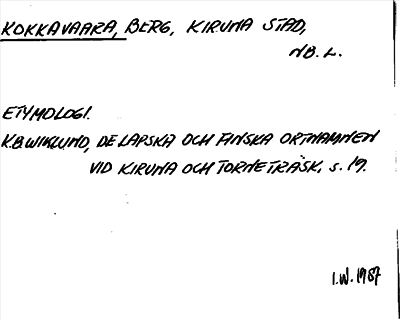 KOKKAVAARA, BERG, KIRUNA STAD,
NB. L.
ETYMOLOGI.
K.B. WIKLUND, DE LAPSKA OCH FINSKA ORTNAMNEN
VID KIRUNA OCH TORNETRÄSK, s. 19.
I.W. 1987